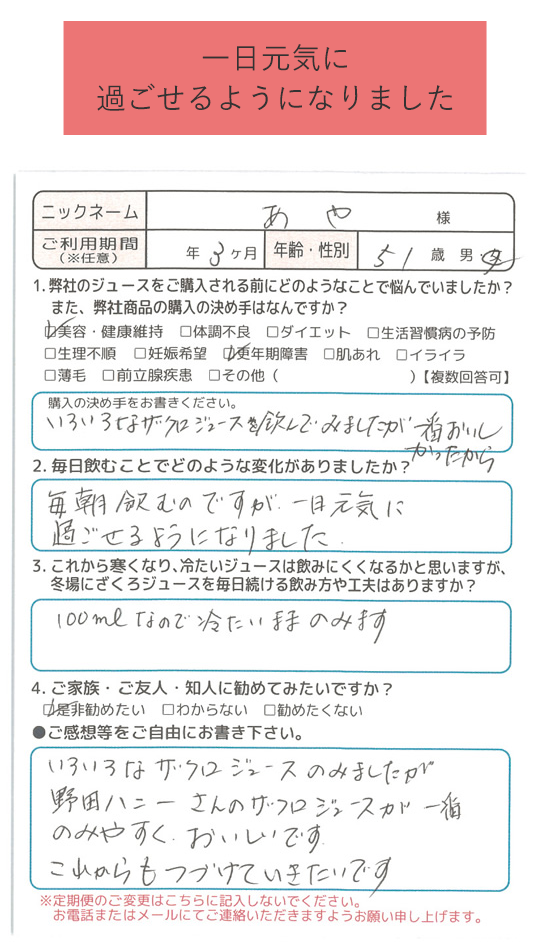 一日元気に
過ごせるようになりました
ニックネーム あや 様
ご利用期間 (※任意) 年 3ヶ月 年齢・性別 51 歳 男 女
1. 弊社のジュースをご購入される前にどのようなことで悩んでいましたか?
また、弊社商品の購入の決め手はなんですか?
☑美容・健康維持 □体調不良 □ダイエット □生活習慣病の予防
□生理不順 □妊娠希望 ☑更年期障害 □肌あれ □イライラ
□薄毛 □前立腺疾患 □その他( )【複数回答可】
購入の決め手をお書きください。
いろいろなザクロジュースを飲んでみましたが一番おいし
かったから
2. 毎日飲むことでどのような変化がありましたか?
毎朝飲むのですが、一日元気に
過ごせるようになりました.
3. これから寒くなり、冷たいジュースは飲みにくくなるかと思いますが、
冬場にざくろジュースを毎日続ける飲み方や工夫はありますか?
100mlなので冷たいままのみます
4. ご家族・ご友人・知人に勧めてみたいですか?
☑是非勧めたい □わからない □勧めたくない
●ご感想等をご自由にお書き下さい。
いろいろなザクロジュースのみましたが
野田ハニーさんのザクロジュースが一番
のみやすく、おいしいです
これからもつづけていきたいです
※定期便のご変更はこちらに記入しないでください。
お電話またはメールにてご連絡いただきますようお願い申し上げます。